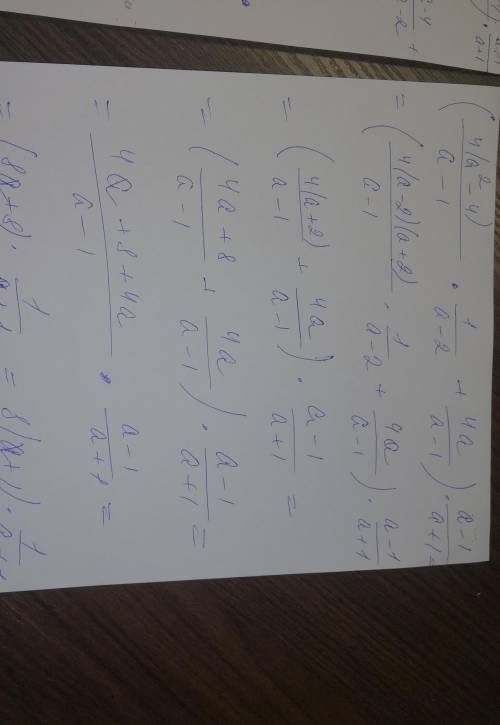 (4(a²-4)/(a-1) · 1/(a-2) + 4a/(a-1)) · (a-1)/(a+1) =
= (4(a-2)(a+2)/(a-1) · 1/(a-2) + 4a/(a-1)) · (a-1)/(a+1)
= (4(a+2)/(a-1) + 4a/(a-1)) · (a-1)/(a+1) =
= (4a+8/(a-1) + 4a/(a-1)) · (a-1)/(a+1) =
= (4a+8+4a)/(a-1) · (a-1)/(a+1) =
= (8a+8) · 1/(a+1) = 8(a+1) · 1/(a+1)